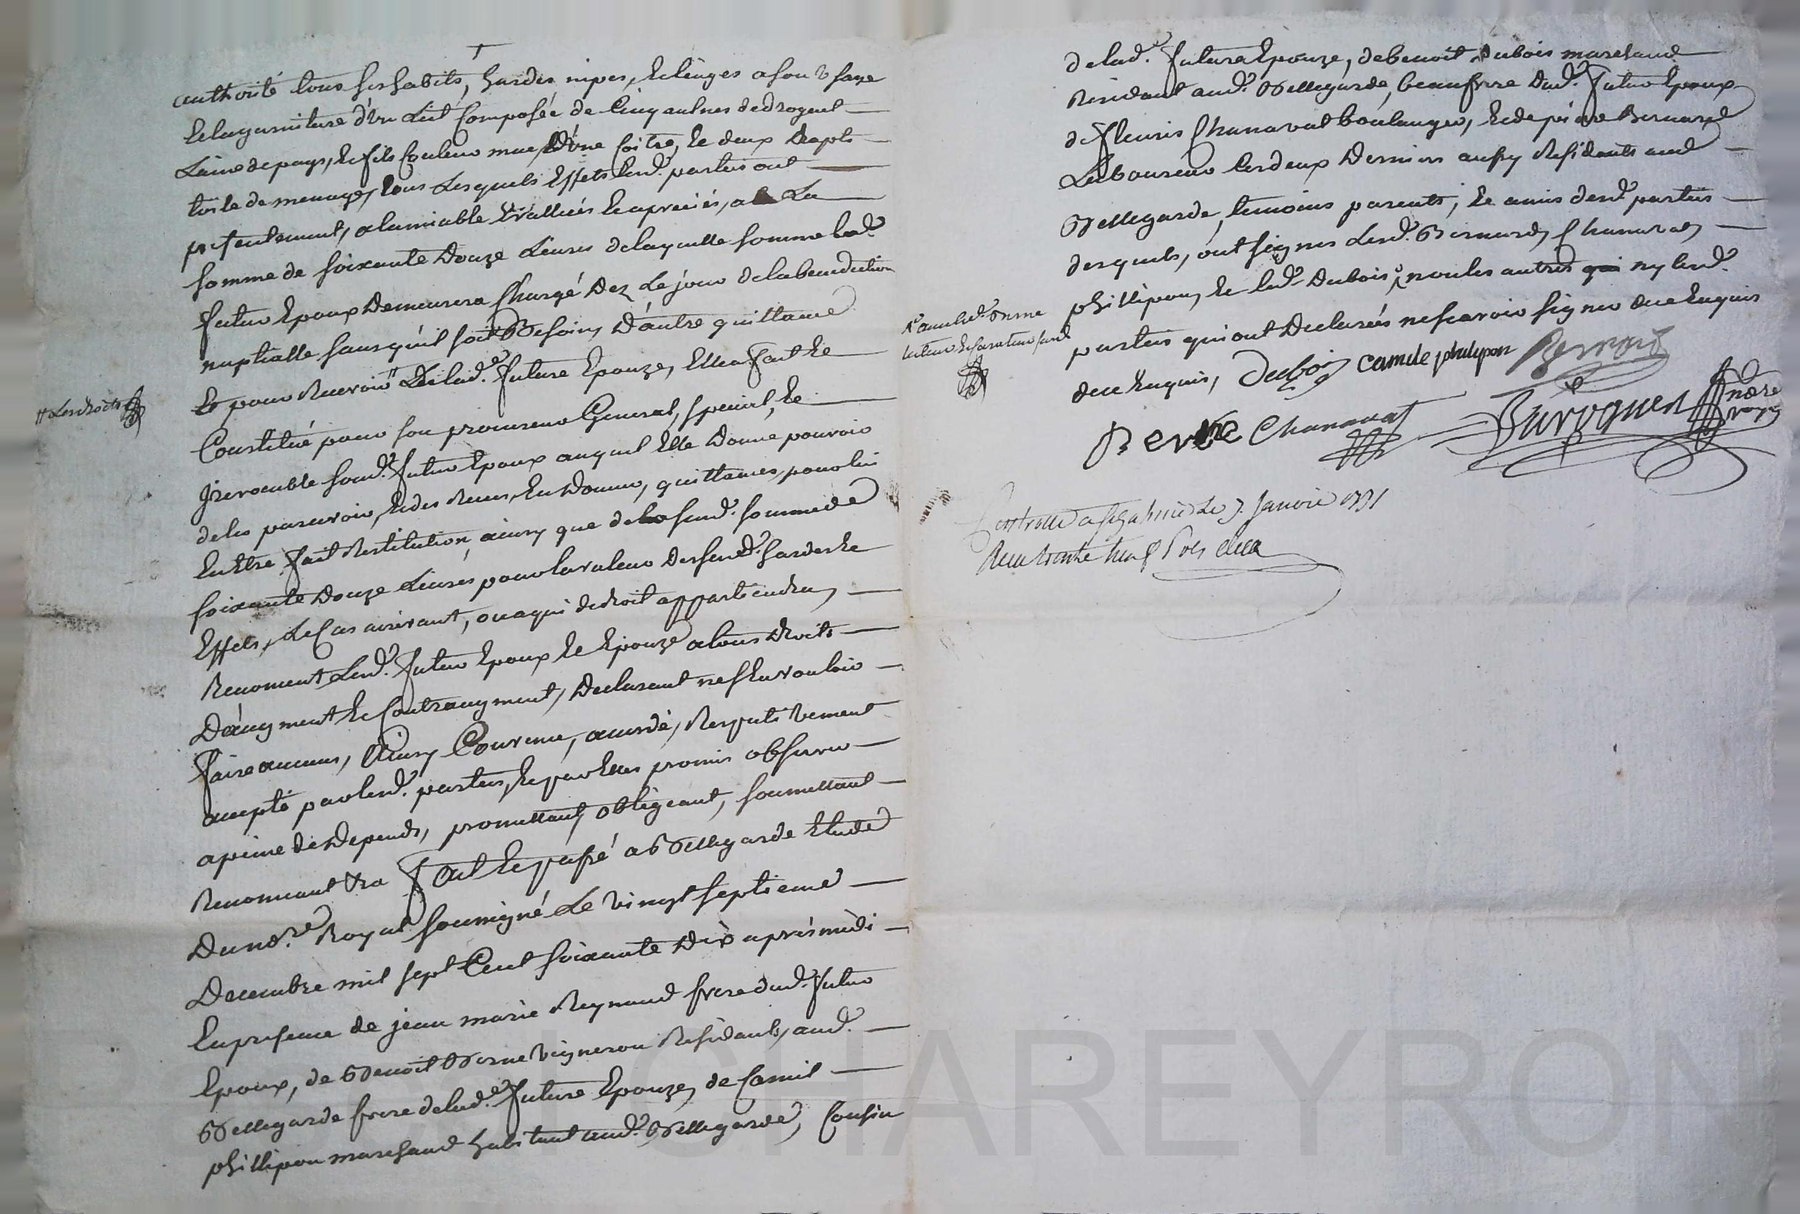 authorité tous ses habits, hardes, nipes, et linges a son usage
et la garniture d'un Lit Composée de Cinq aulnes de drogent
Laine de pays, et fils Couleur mue, D'une Coitre, et deux Draps
toile de menage, tous Lesquels Effets Lesd. parties ont
presentement, a lamiable Evallués et apreciés, a La
somme de soixante Douze Livres de laquelle somme led.
futur Epoux Demeurera Chargé Dez Le jour de la benediction
nuptialle sans qu'il soit Besoin, D'autre quittance
Et pour Recevoir # De lad. future Epouze, Ella fait et
# Les droits
Constitué pour son procureur General, special, et
jrrevocable sond. futur Epoux auquel Elle Donne pouvoir
de les percevoir, et des Recus, En Donner, quittances, pour lui
En Etre fait Restitution, ainsy que de la susd. somme de
soixante Douze Livres pour la valeur Desd. hardes et
Effets, Le Cas arrivant, ou a qui de droit appartiendra,
Renoncent Lesd. futur Epoux et Epouze a tous Droits
D'augment et Contraugment, Declarant ne s'En vouloir
faire aucuns, Ainsy Convenu, accordé, Respectivement
accepté par lesd. parties, et par Elles promis observer
a peine de Depends, promettant, obligeant, soumettant
Renonceant &a fait et passé a Bellegarde Etude
Du no.re Royal soussigné Le vingt septieme
Decembre mil sept Cent soixante Dix apres midi
En presence de jean marie Reynaud frere dud. futur
Epoux, de Benoit Berne Vigneron Residant, aud.
Bellegarde frere de lad. future Epouze, de Camil
phillipon marchand habitant aud. Bellegarde, Cousin
de lad. future Epouze, de benoit Dubois marchand
Residant aud. Bellegarde, beaufrere Dud. futur Epoux
de fleuris Chanavat boulanger, et de pierre Bernard
Laboureur Les deux Derniers aussy Residants aud.
Bellegarde, temoins parents, et amis desd. parties
desquels, ont signés Lesd. Bernard, Chanavat,
phillipon, et led. Dubois, non les autres ny lesd.
parties qui ont Declarés ne scavoir signer de ce Enquis
de ce Enquis, Dubois camile philipon Bernard
Berne Chanavat
Controllé a st galmier Le 7. Janvier 1771
Recu trente neuf sols
CHAREYRON